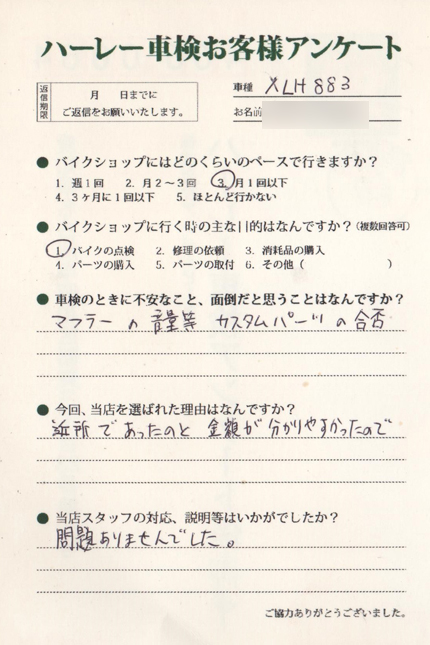 ハーレー車検お客様アンケート
返信期限
月 日までに
ご返信をお願いいたします。
車種 XLH883
お名前
● バイクショップにはどのくらいのペースで行きますか？
1. 週1回 2. 月2～3回 3. 月1回以下
4. 3ヶ月に1回以下 5. ほとんど行かない
● バイクショップに行く時の主な目的はなんですか？(複数回答可)
1. バイクの点検 2. 修理の依頼 3. 消耗品の購入
4. パーツの購入 5. パーツの取付 6. その他（ ）
● 車検のときに不安なこと、面倒だと思うことはなんですか？
マフラーの音量等 カスタムパーツの合否
● 今回、当店を選ばれた理由はなんですか？
近所であったのと 金額が分かりやすかったので
● 当店スタッフの対応、説明等はいかがでしたか？
問題ありませんでした。
ご協力ありがとうございました。